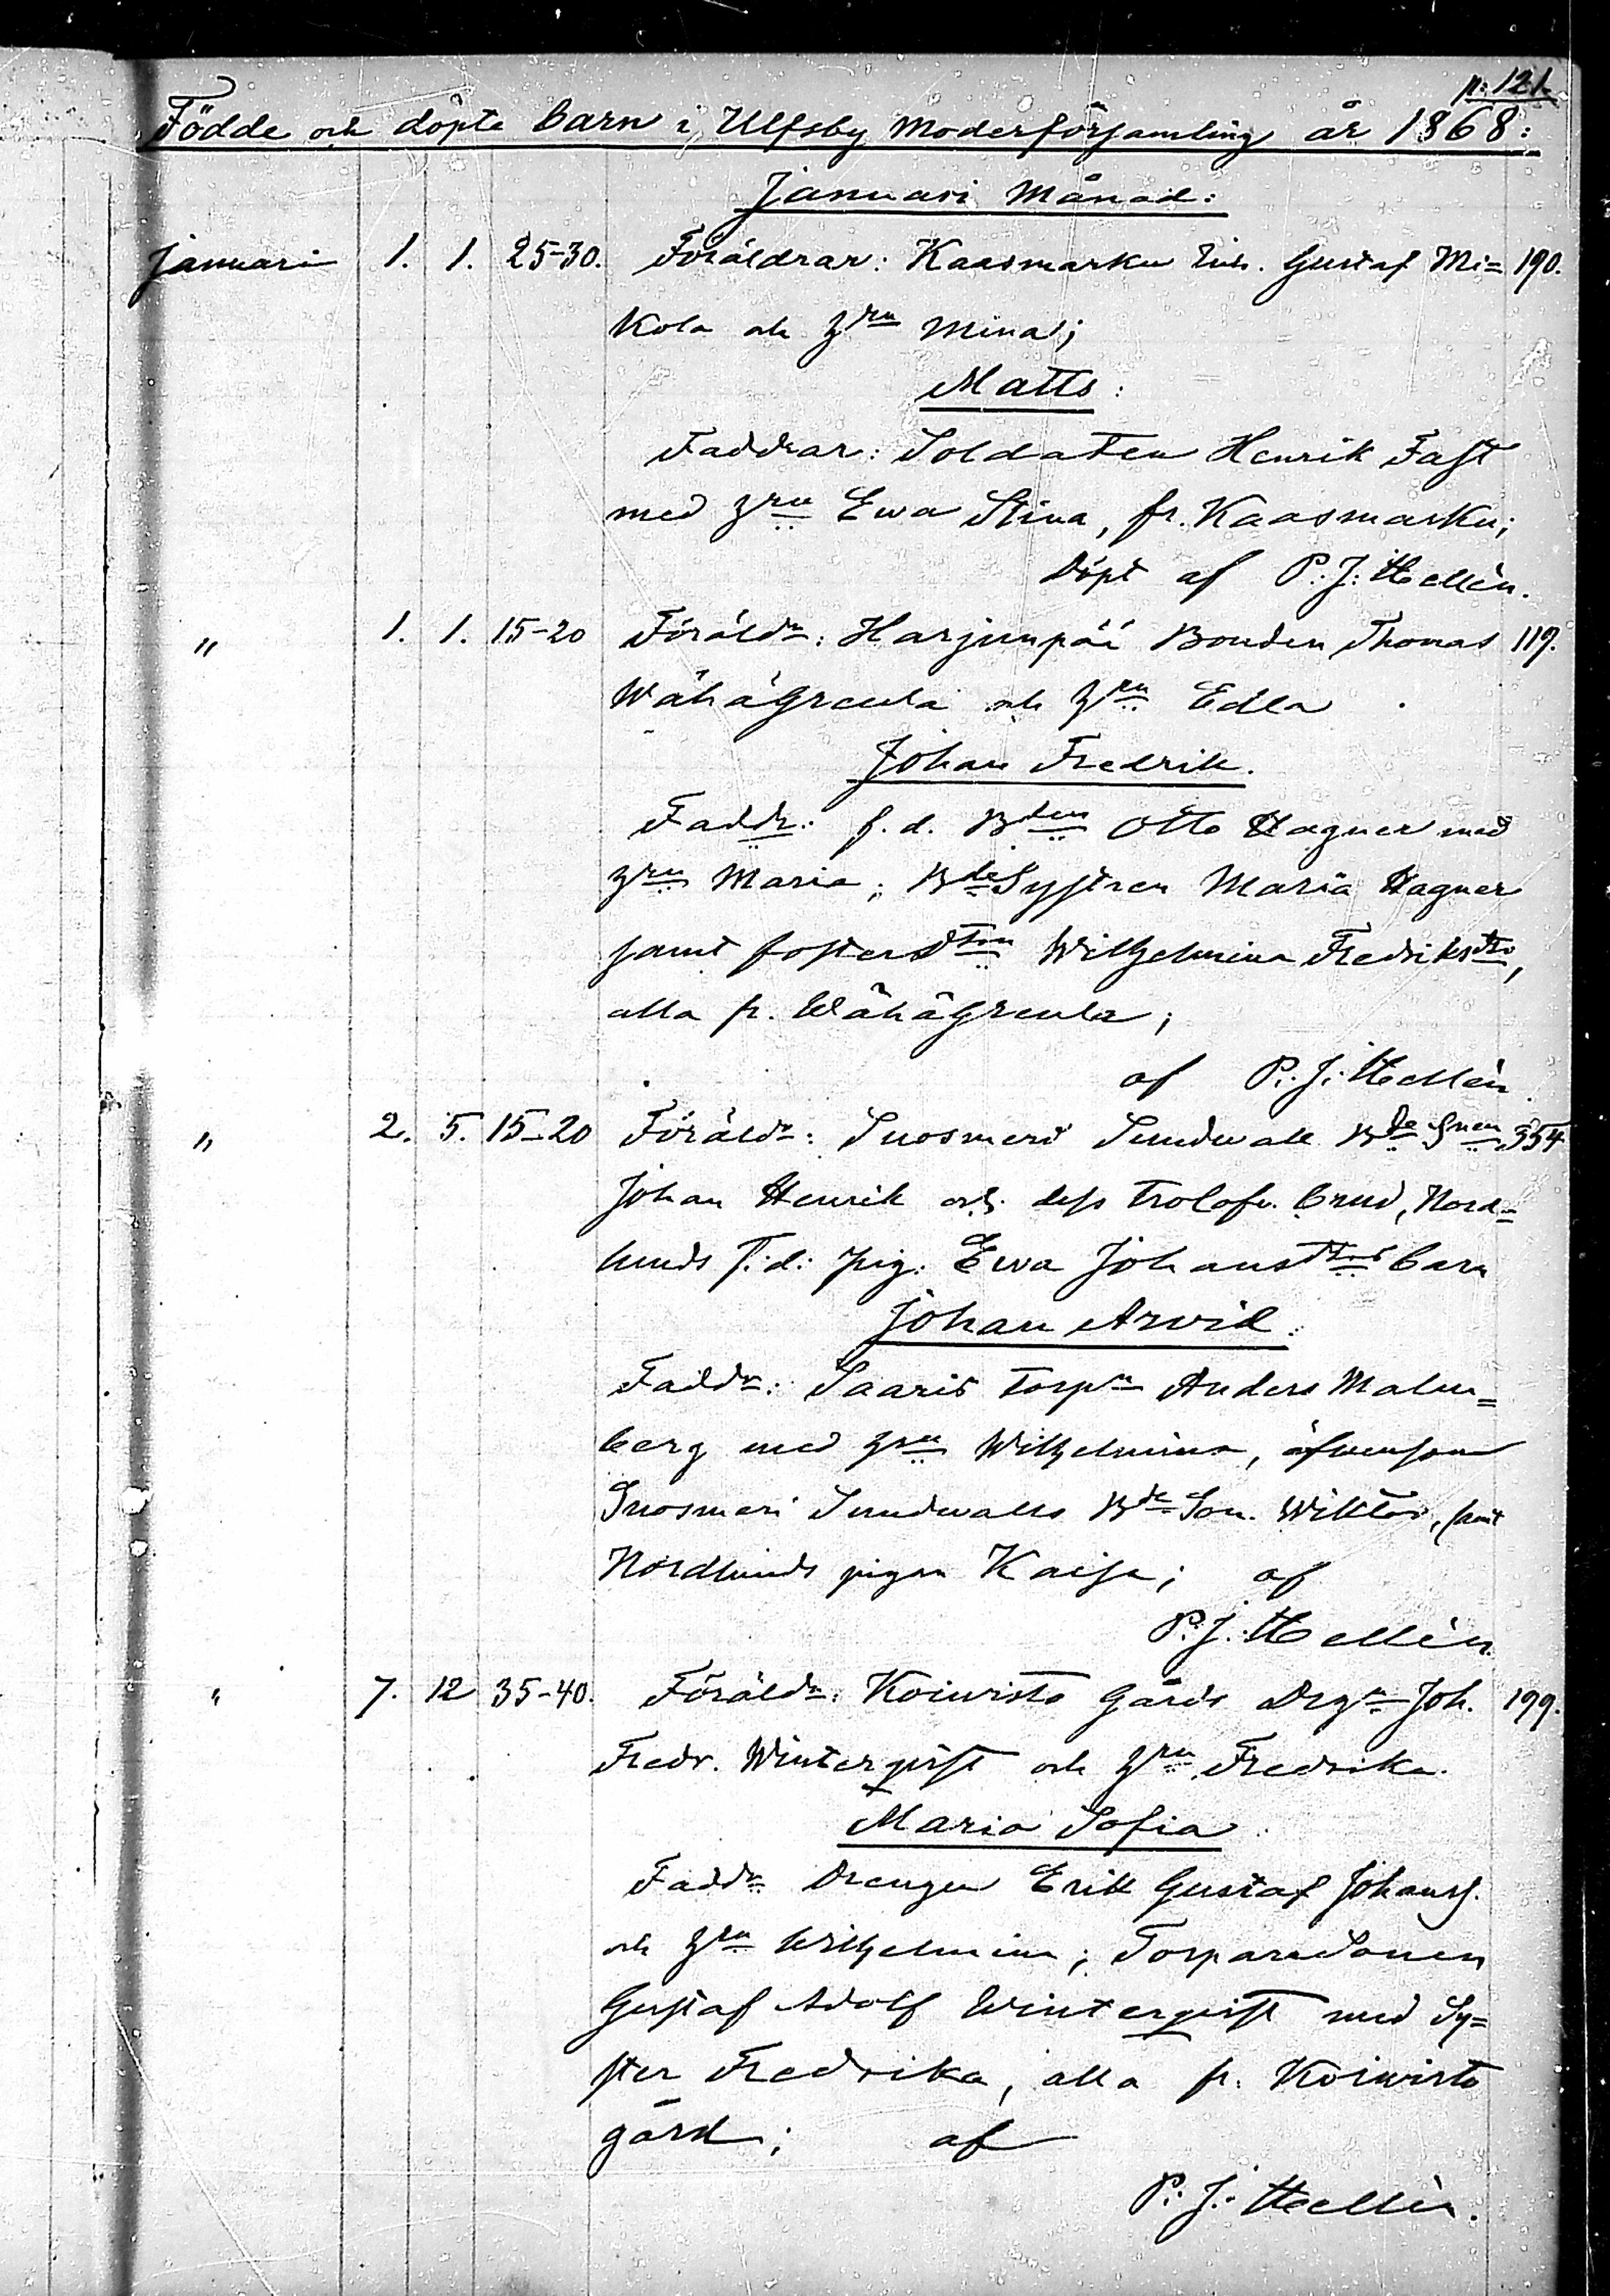 p: 121.
Födde och döpte barn i Ulfsby Moderförsamling år 1868:
Januari Månad:
Januari 1. 1. 25-30. Föräldrar: Kaasmarku Gustaf Mi= 190.
kola och hru Mina;
Matts:
Faddrar: Soldaten Henrik Fast
med hru Ewa Stina, fr. Kaasmarku;
Döpt af P: J: Hellén.
" 1. 1. 15-20 Föräldr: Harjunpää Bonden Thomas 119.
WähäGreula och hru Edla
Johan Fredrik.
Faddr: f. d. Bden Otto Hagner med
hru Maria; BdeSystren Maria Hagner
samt fosterdtren Wilhelmina Fredriksdtr,
alla fr. WähäGreula;
af P: J: Hellén
" 2. 5. 15-20 Föräldr: Suosmeri Sundwall Bde Snen 354
Johan Henrik och dess trolofv. brud, Nord=
lunds f: d: pig: Ewa Johansdtrs barn
Johan Arvid.
Faddr: Saaris torpr Anders Malm=
berg med hru Wilhelmina, äfvensom
Suosmeri Sundwalls Bde Son. Wiktor, samt
Nordlunds pigan Kaisa; af
P: J: Hellén.
" 7. 12 35-40. Föräldr: Koivisto Gårds Drgn Joh. 199.
Fredr. Winterqvist och hru Fredrika.
Maria Sofia
Faddr Drengen Erik Gustaf Johanss.
och hru Wilhelmina; Torparesonen
Gustaf Adolf Winterqvist med Sy=
ster Fredrika, alla fr. Koivisto
gård; af
P: J: Hellén.